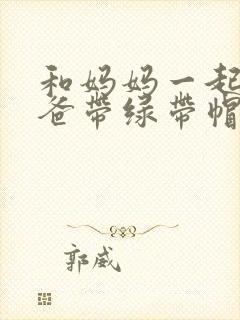 和妈妈一起
爸带绿带帽
郭威